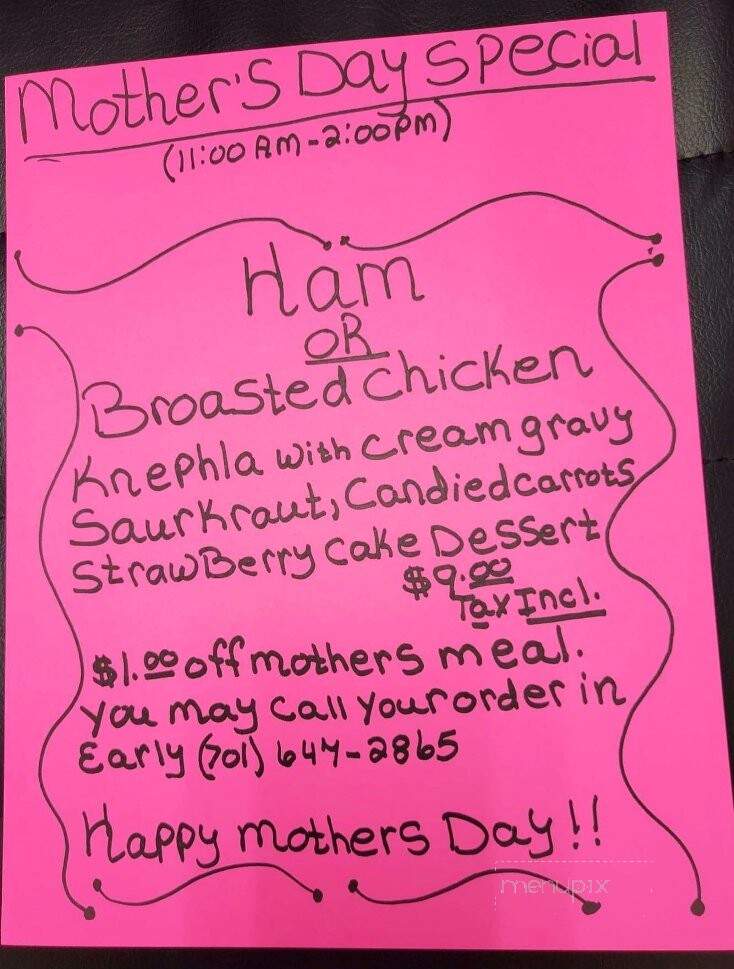 Mother's Day Special
(11:00 AM-2:00pm)
Ham
OR
Broasted Chicken
Knephla with creamgravy
Saurkraut, Candied carrots
StrawBerry Cake Dessert
$9.00
Tax Incl.
$1.00 off mothers meal.
You may Call Your order in
Early (701) 647-2865
Happy mothers Day!!
menupix